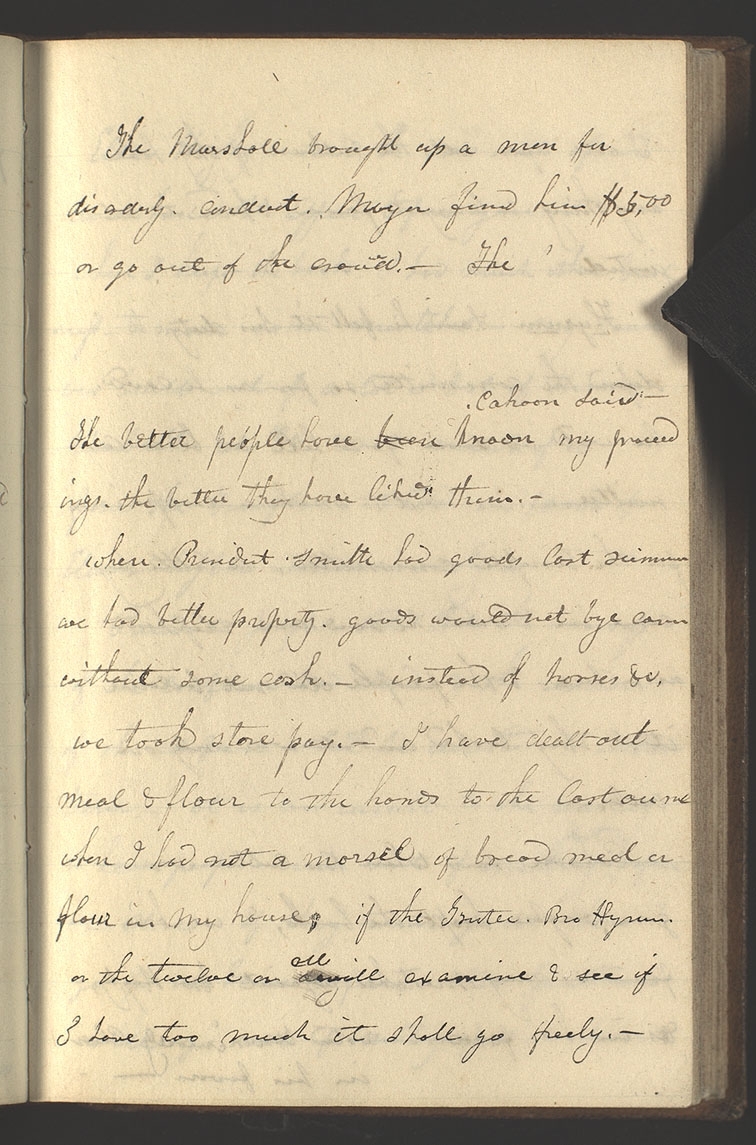 The Marshall brought up a man for
disorderly. conduct. Mayor fined him $5,00
or go out of the crowd.— The
Cahoon said—
The better people have been known my proceed
ings. the better they have liked them.—
when. President. Smith had goods last summer
we had better property. goods would not bye corn
without some cash.— instead of horses &c,
we took store pay.— I have dealt out
meal & flour to the hands to the last ounce
when I had not a morsel of bread meal or
flour in my house, if the Trustee. Bro Hyrum.
or the twelve or all will examine & see if
I have too much it shall go freely.—